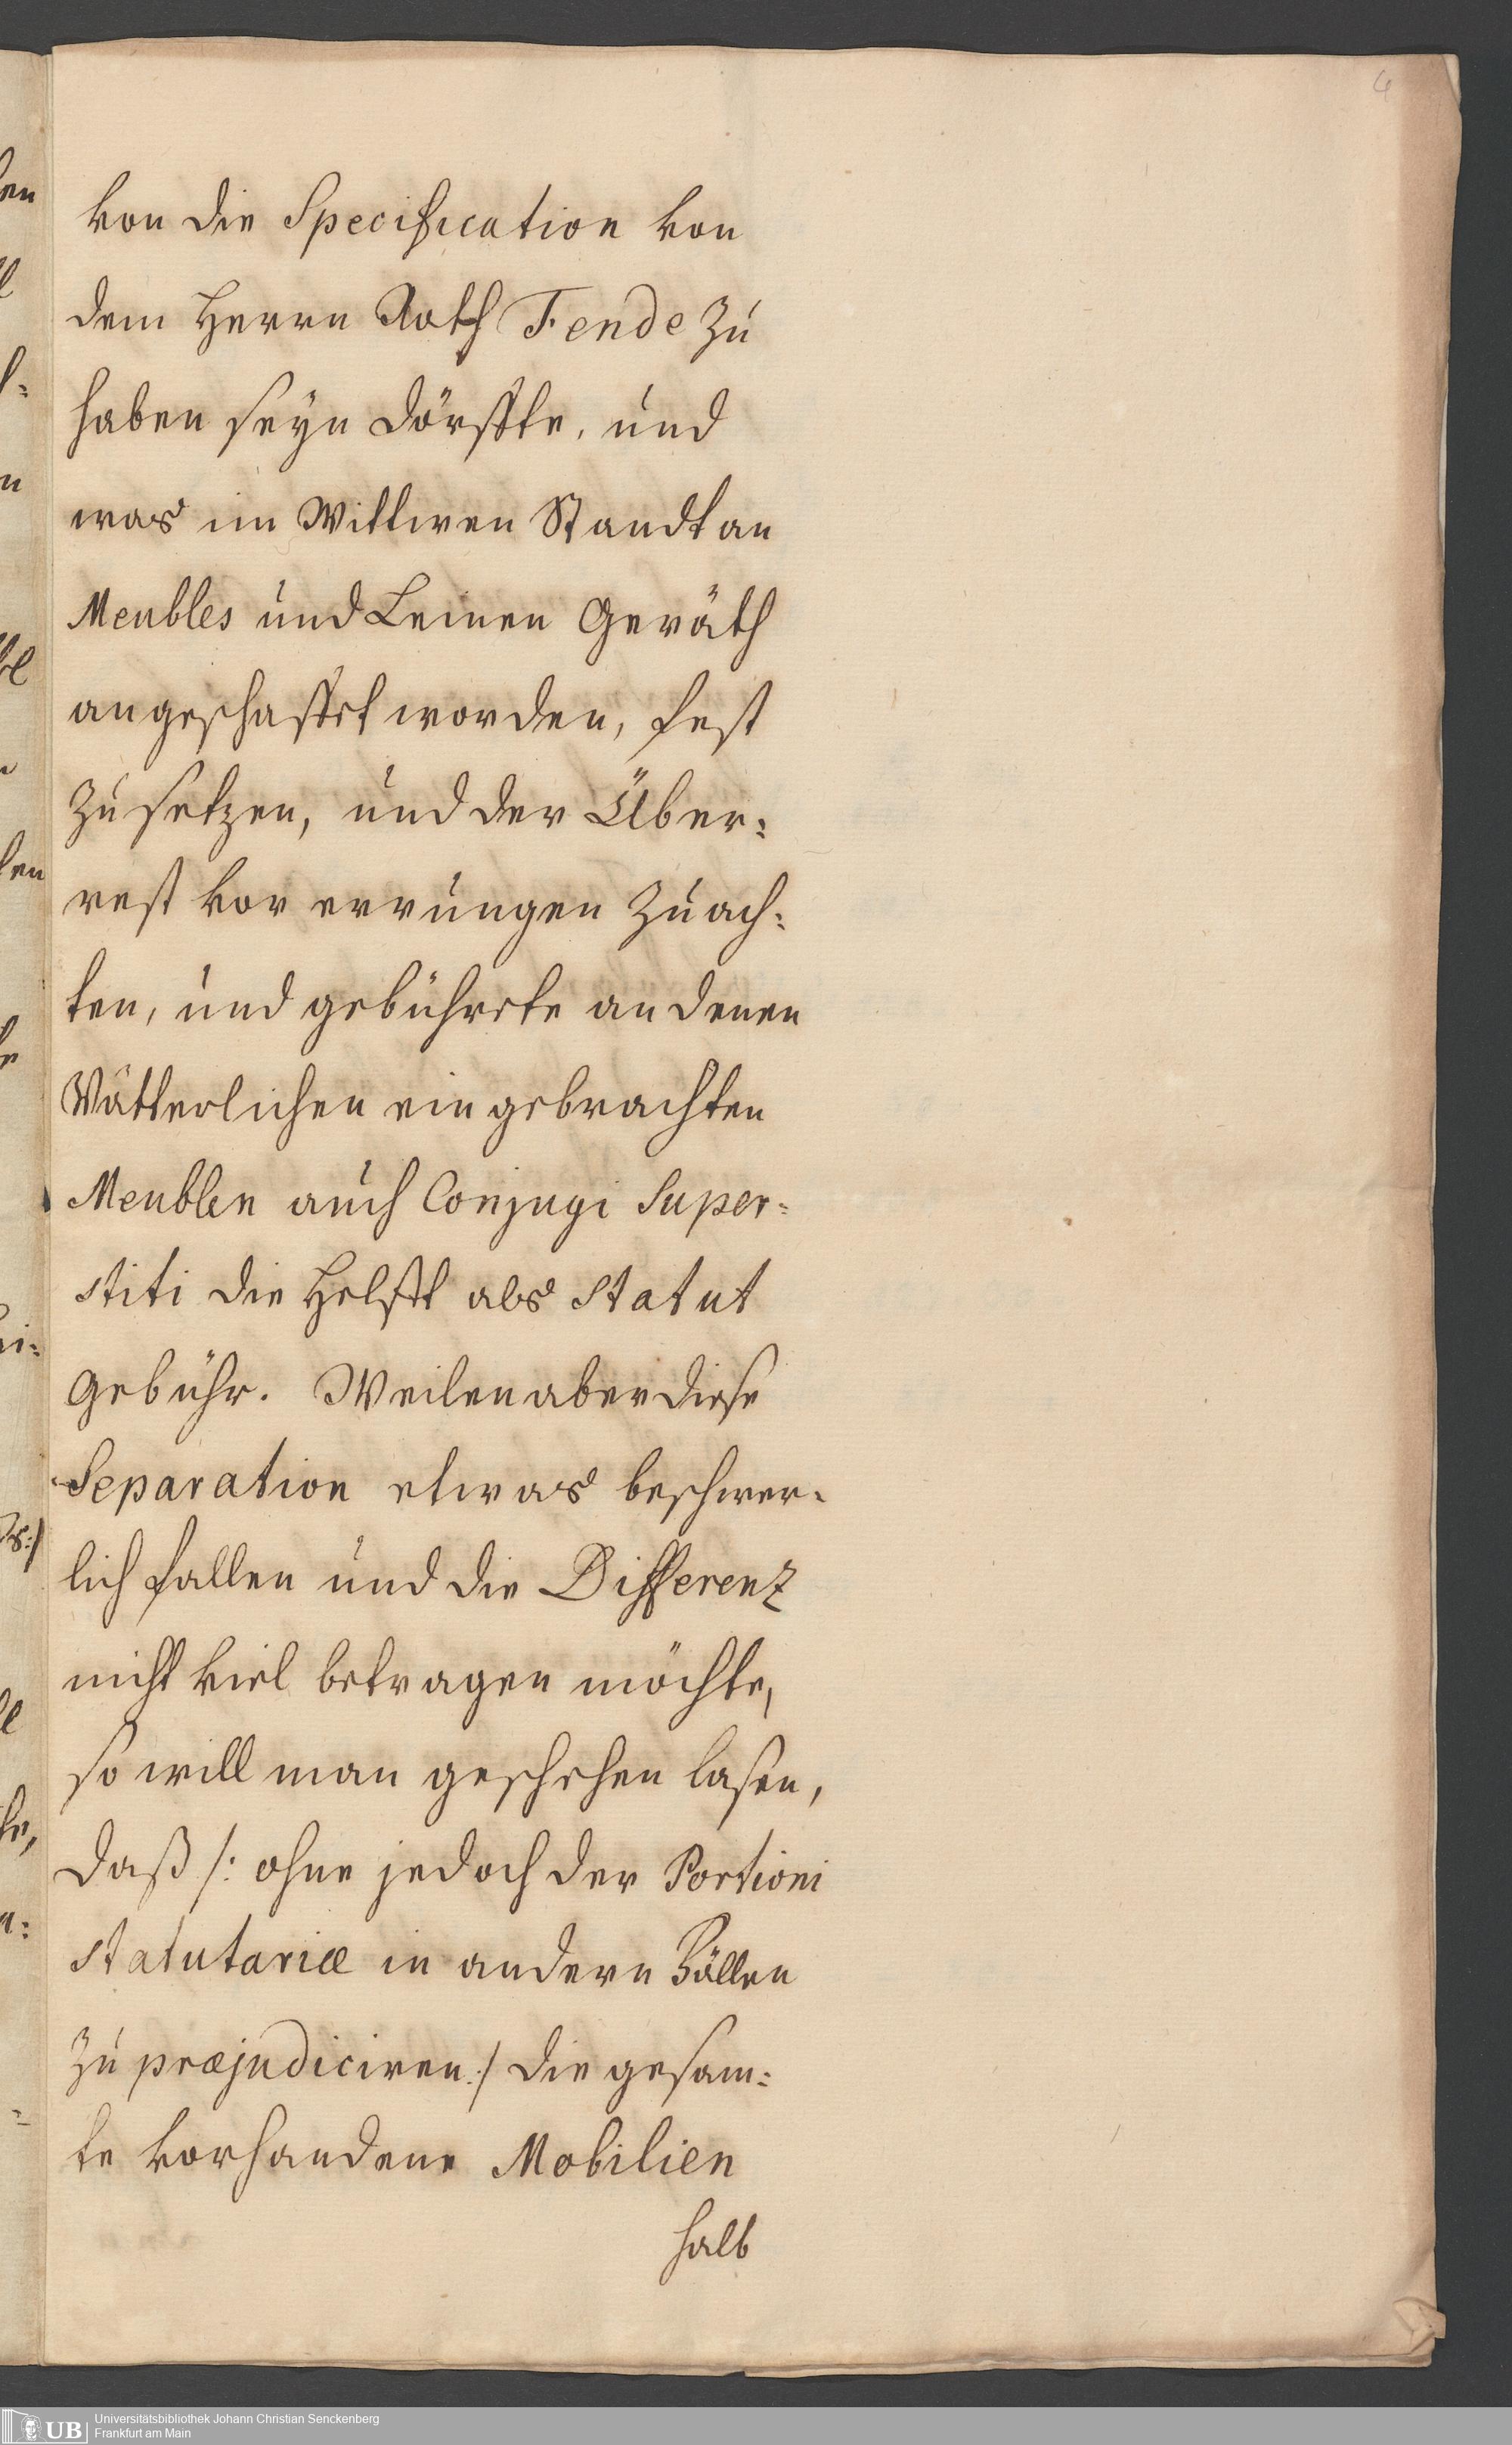 6
von die Specification von
dem Herrn Rath Fende zu
haben seyn dörffte, und
was im Wittwen Standt an
Meubles und Leinen Geräth
angeschaffet worden, fest
zu setzen, und der Über:
rest vor errungen zu ach:
ten, und gebührete an denen
Vätterlichen eingebrachten
Meublen auch Conjugi Super=
stiti die Helfft als Statut
Gebühr. Weilen aber diese
Separation etwas beschwer=
lich fallen und die Differenz
nicht viel betragen möchte,
so will man geschehen lasen,
daß /: ohne jedoch der Portioni
statutariæ in andern Fällen
zu præjudiciren :/ die gesam:
te vorhandene Mobilien
halb
UB
Universitätsbibliothek Johann Christian Senckenberg
Frankfurt am Main